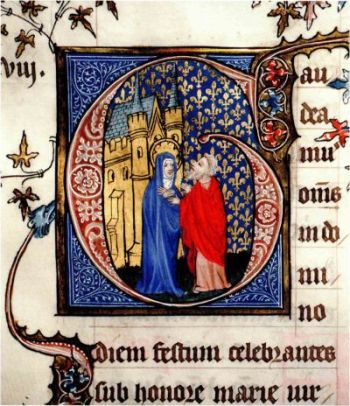 viij.
Gau
dea
mu
om̄s
in do
mi
no
diem festum celebrantes
sub honore marie uir